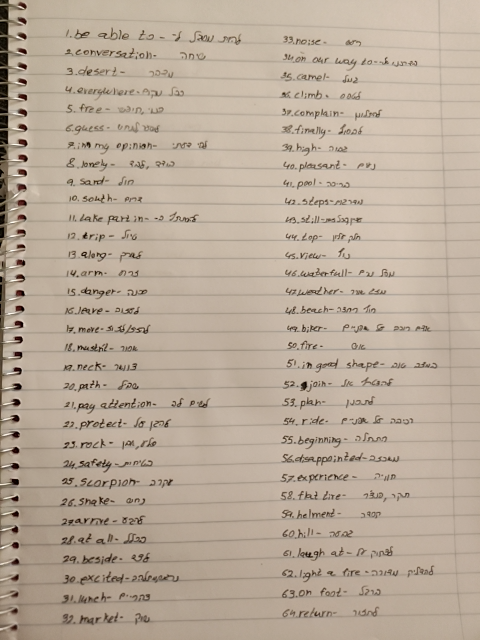 1. be able to - להיות מסוגל ל
2. conversation - שיחה
3. desert - מדבר
4. everywhere - בכל מקום
5. free - חופשי
6. guess -
7. in my opinion - לפי דעתי
8. lonely - בודד, לבד
9. sand - חול
10. south - דרום
11. take part in - להשתתף ב
12. trip - טיול
13. along - לאורך
14. arm - זרוע
15. danger - סכנה
16. leave - לעזוב
17. move - לזוז
18. mustn't - אסור
19. neck - צוואר
20. path - שביל
21. pay attention - לשים לב
22. protect - להגן על
23. rock - סלע, אבן
24. safety - בטיחות
25. scorpion - עקרב
26. snake - נחש
27. arrive - להגיע
28. at all - בכלל
29. beside - ליד
30. excited - מתרגש
31. lunch - צהריים
32. market - שוק
33. noise - רעש
34. on our way to - בדרכנו ל
35. camel - גמל
36. climb - לטפס
37. complain - להתלונן
38. finally - לבסוף
39. high - גבוה
40. pleasant - נעים
41. pool - בריכה
42. steps - מדרגות
43. still -
44. top - חלק עליון
45. view - נוף
46. waterfull - מפל מים
47. weather - מזג אוויר
48. beach - חוף רחצה
49. biker - אדם רוכב על אופניים
50. fire - אש
51. in good shape - במצב טוב
52. join - להצטרף אל
53. plan - לתכנן
54. ride - רכיבה על אופניים
55. beginning - התחלה
56. disappointed - מאוכזב
57. experience - חוויה
58. flat tire - תקר, פנצ'ר
59. helment - קסדה
60. hill - גבעה
61. laugh at - לצחוק על
62. light a fire - להדליק מדורה
63. on foot - ברגל
64. return - לחזור